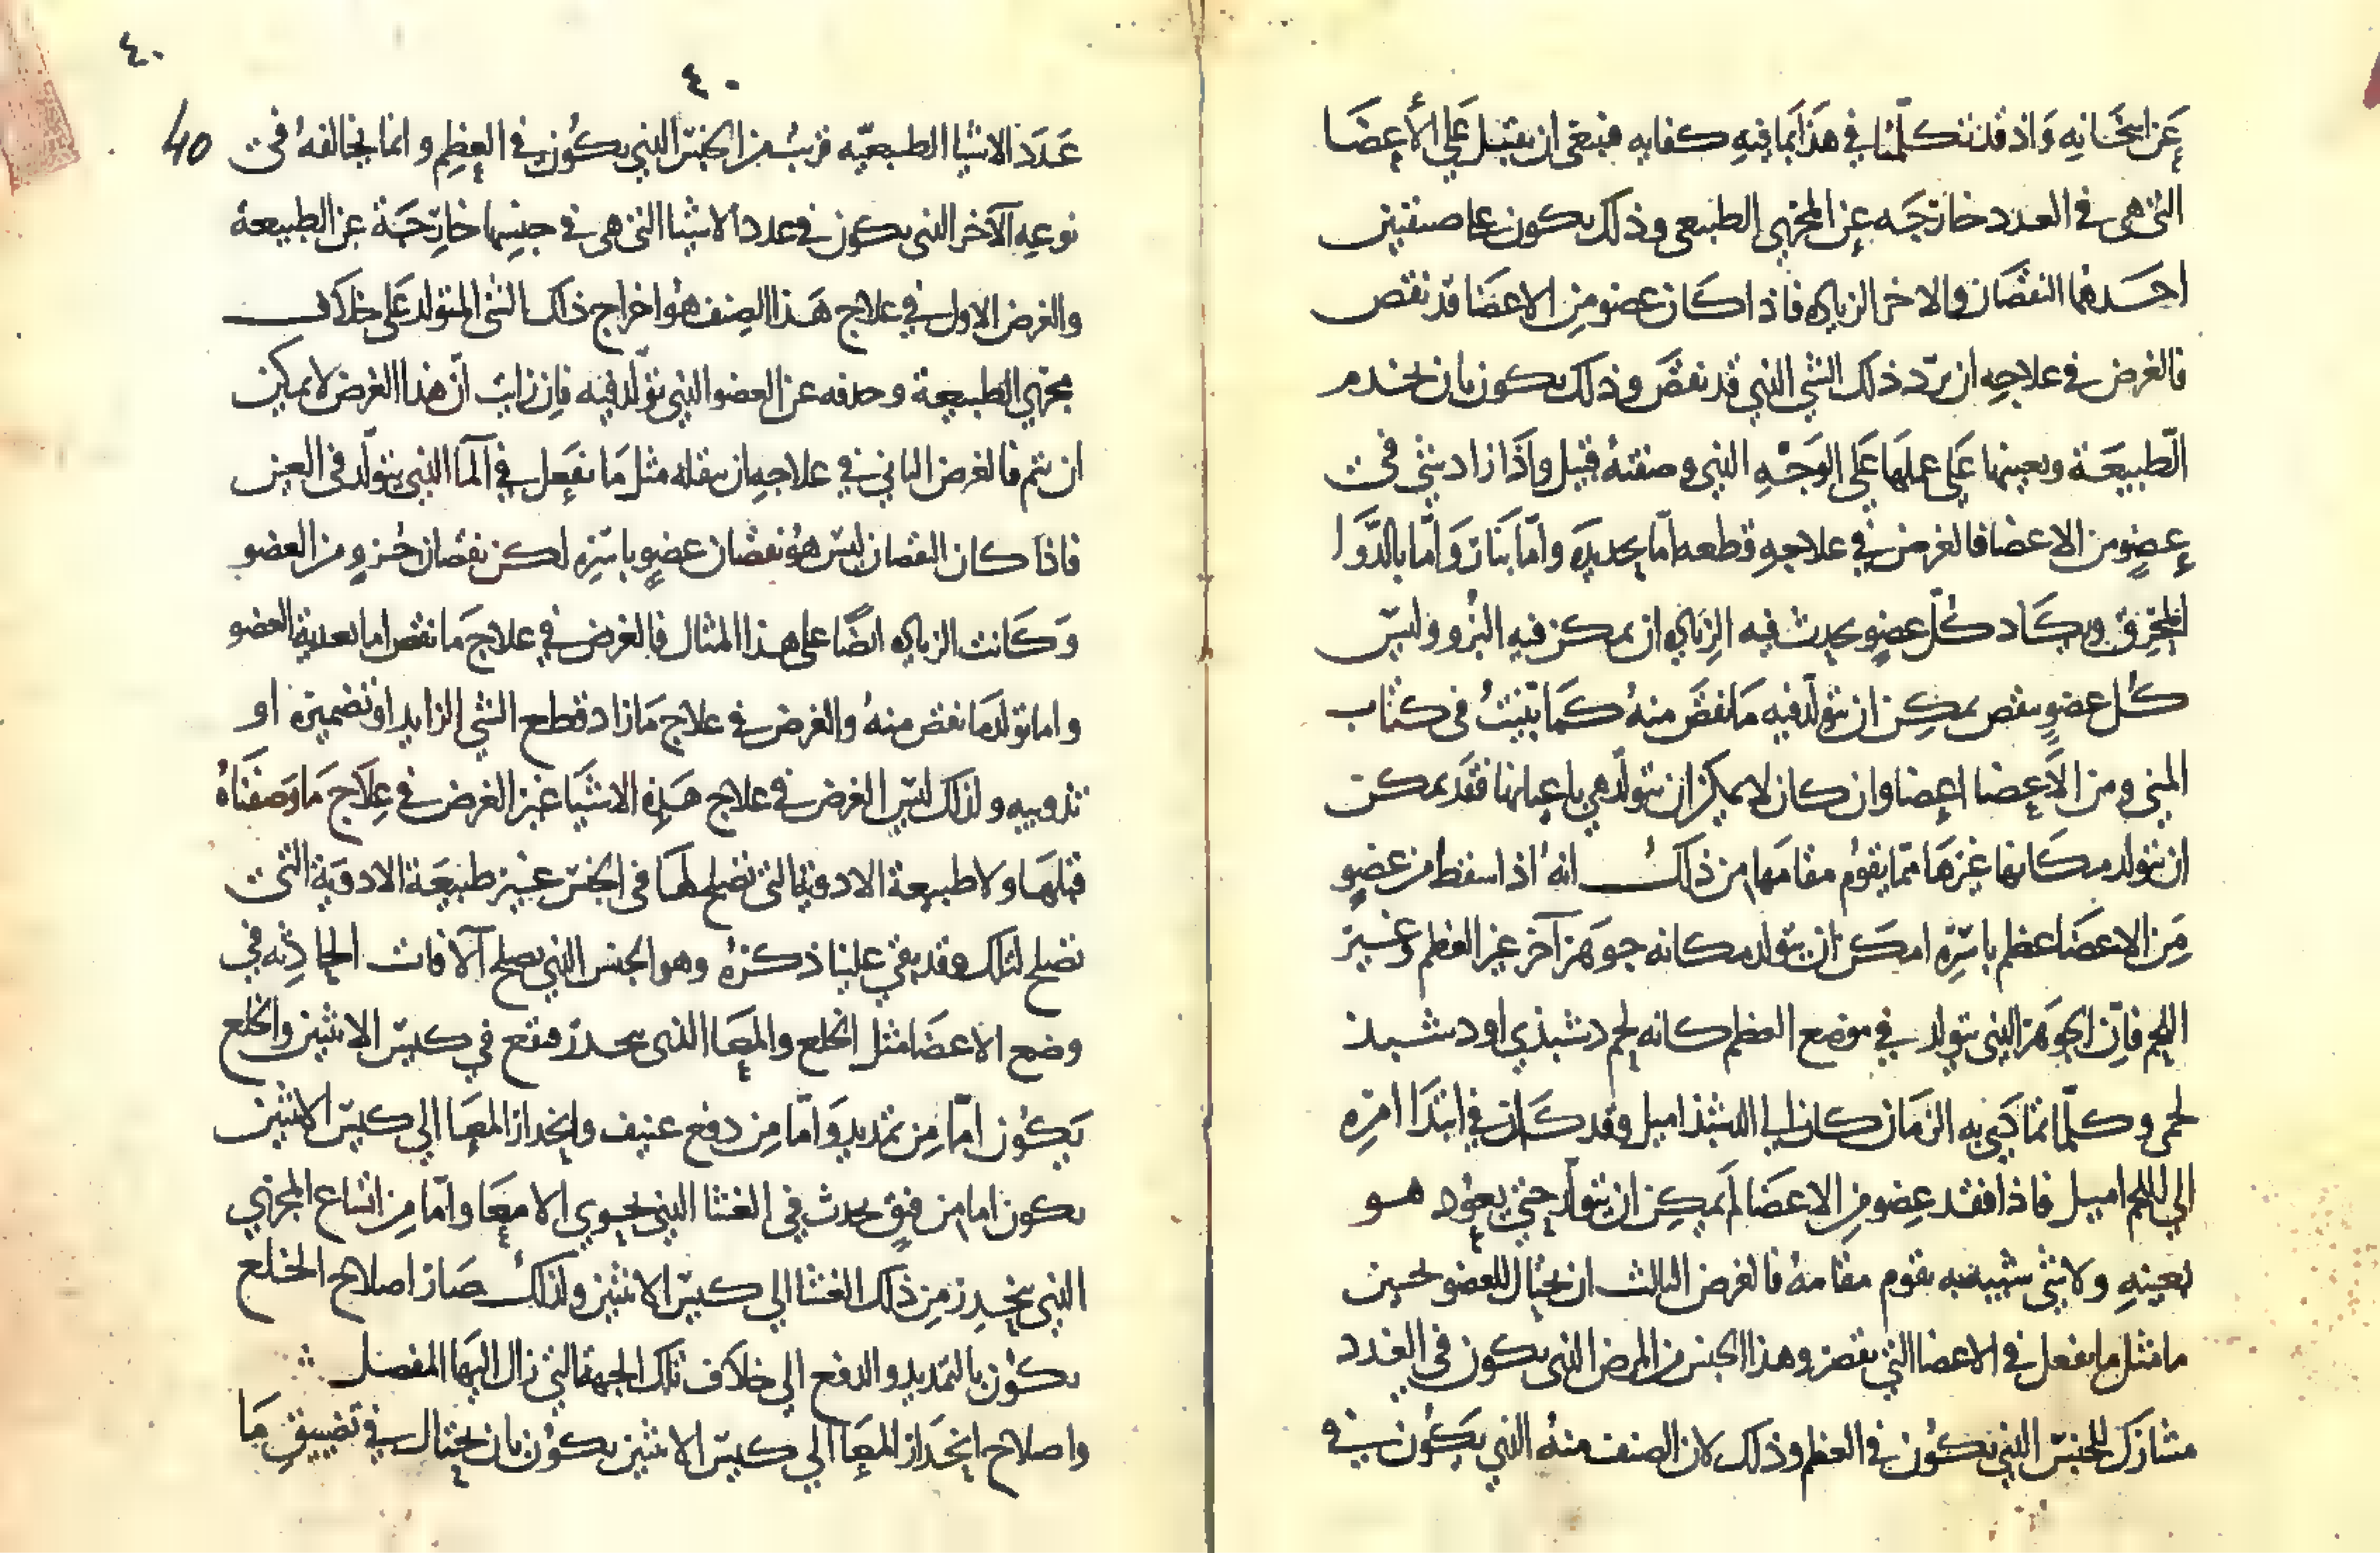 عَن اسخانه وَاذ قد تكلّمنا في هَذا بما فيهِ كفايه فينبغى ان نقبل عَلي الأعضَا
التى هى فى العدد خارجَه عن المجرى الطبيعى وذلك يكون علي صنفين
احدهما النقصَان والاخر الزياده فاذا كَان عضو من الاعضَا قد نقص
فالغرض في علاجِه ان تردّ ذلك الشي الذي قد نقصَ وذلك يكون بان تخدم
الطّبيعَة وتعينها عَلي عملهَا عَلي الوَجْهِ الذي وصفتهُ قبيل وَاذَا زاد شي في
عضوٍ من الاعضا فالغرض في علاجه قطعه امّا بحديدَه وامّا بنار وَامّا بالدّوَا
المحرِق ويكَاد كلّ عضوٍ يحدث فيه الزياده ان يمكن فيه البرو وليس
كُل عضوٍ ينقص يمكِن ان يتولّد فيه مَا نقصَ منهُ كمَا بيّنتُ في كتاب
المني ومن الأَعضا اعضا وان كان لا يمكن ان تتولّد هي باعيانها فقَد يمكن
ان يتولد مكَانها غيرهَا ممّا يقومُ مقامهَا من ذلكُ انهُ اذا سقط من عضوٍ
مِن الاعضَا عظم باسْرِه امكَن ان يتولد مكانه جوهر آخر غير العظم وغير
اللحم فانّ الجوهَر الذي يتولد في موضع العظم كانه لحم دشبذي او دشبذ
لحمى وكلّما تمادَي به الزمَان كان الي الدشبذ اميل وقد كَان في ابتدَا امرِه
الي اللحم اميل فاذا فقد عضو من الاعضَا لم يمكِن ان يتولّد حتي يعُود هو
بعينهِ ولا شي شبيه به يقوم مقامهُ فالغرض الثالث ان تحتال للعضو لحسن
ما مثل ما يفعل في الاعضا التي تقصر وهذا الجنس من المرض الذي يكون في العدد
مشارك للجنس الذي يكُون في العظم وذلك لان الصنف منهُ الذي يكُون في
٤٠
٤٠
40
عَدَد الاشيا الطبيعيّه قريبُ من الجنس الذي يكُون في العِظم وانما يخالفهُ في
نوعِه الآخر الذي يكون في عدد الاشيا التى هى في جنسِها خارجَة عن الطبيعة
والغرض الاول في علاج هَذا الصنف هُو اخراج ذلك الشى المتولد عَلى خلاف
مجري الطبيعة وحذفه عن العضو الذي تولّد فيه فان رايت انّ هذا الغرض لا يمكن
ان يتم فالغرض الثاني في علاجهِ ان تنقله مثل مَا نفعل في المآ الذي يتولّد فى العين
فاذا كان النقصان ليس هُو نقصَان عضوٍ باسْرِه لكن نقصان جُزوٍ من العضو
وَكَانت الزياده ايضًا على هذا المثال فالغرض في علاج مَا نقص اما تغذية العضو
واما تولد مَا نقص منهُ والغرض في علاج مَا زاد قطع الشي الزايد او تضميره او
تذويبه ولذلك ليس الغرض في علاج هَذِه الاشيَا غير الغرض في عِلاج مَا وَصفنَاهُ
قبلهَا ولا طبيعة الادوية التي تصلح لهَا في الجنس غير طبيعَة الادويَة التي
تصلح لتلك وقد بقي علينا ذكرهُ وهو الجنس الذي يصلح الآفات الحادِثه في
وضع الاعضَا مثل الخلع والمِعَا الذى ينحدر فيقع في كيس الانثيين والخلع
يَكُون امّا مِن تمديدٍ وَامّا مِن دفع عنيف وانحدار المعَا الي كيس الانثيين
يكون اما من فتقٍ يحدث في الغشا الذي يحوي الامعَا وامّا مِن اتساع المجري
الذي ينحدِر مِن ذلك الغشا الي كيس الانثيين ولذلكُ صَار اصلاح الخلع
يكُون بالتمديد والدفع الي خلاَف تلك الجهة التي زال اليهَا المفصل
واصلاح انحدَار المعَا الي كيس الانثيين يكوُن بان تحتال في تضييق مَا